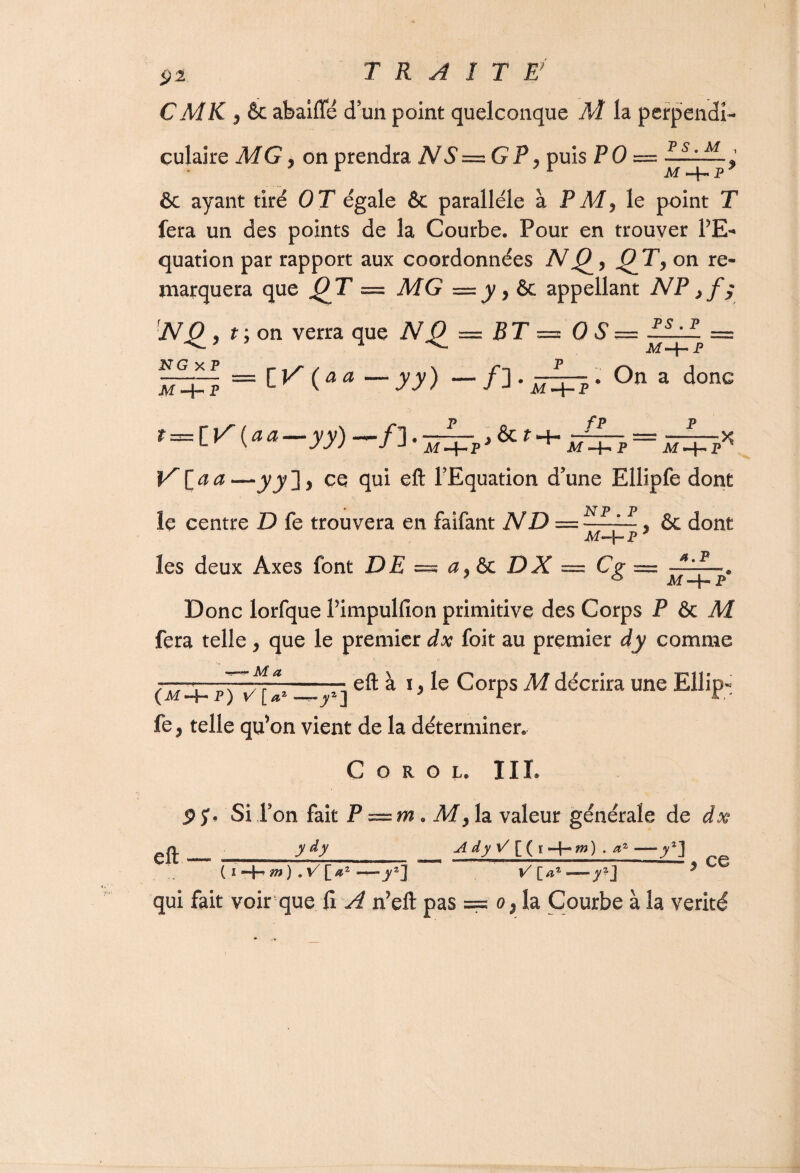 92 TRAITE'
CMK, & abaiſſé d'un point quelconque M la perpendi-
culaire MG, on prendra NS = GP, puis PO = PS.M / M+P,
& ayant tiré OT égale & paralléle à PM, le point T
ſera un des points de la Courbe. Pour en trouver l'E-
quation par rapport aux coordonnées NQ, QT, on re-
marquera que QT = MG = y, & appellant NP, f;
NQ, t; on verra que NQ = BT = OS = PS.P / M+P =
NG×P / M+P = [√(aa—yy) —f]. P / M+P. On a donc
t=[√(aa—yy)—f]. P / M+P, & t+ fP / M+P = P / M+P ×
√[aa—yy], ce qui eſt l'Equation d'une Ellipſe dont
le centre D ſe trouvera en faiſant ND = NP.P / M+P, & dont
les deux Axes ſont DE = a, & DX = Cg = a.P / M+P.
Donc lorſque l'impulſion primitive des Corps P & M
ſera telle, que le premier dx ſoit au premier dy comme
—Ma / (M+P) √[a²—y²] eſt à 1, le Corps M décrira une Ellip-
ſe, telle qu'on vient de la déterminer.
COROL. III.
95. Si l'on fait P = m. M, la valeur générale de dx
eſt — y dy / (1+m).√[a²—y²] — A dy √[(1+m).a²—y²] / √[a²—y²], ce
qui fait voir que ſi A n'eſt pas = 0, la Courbe à la verité